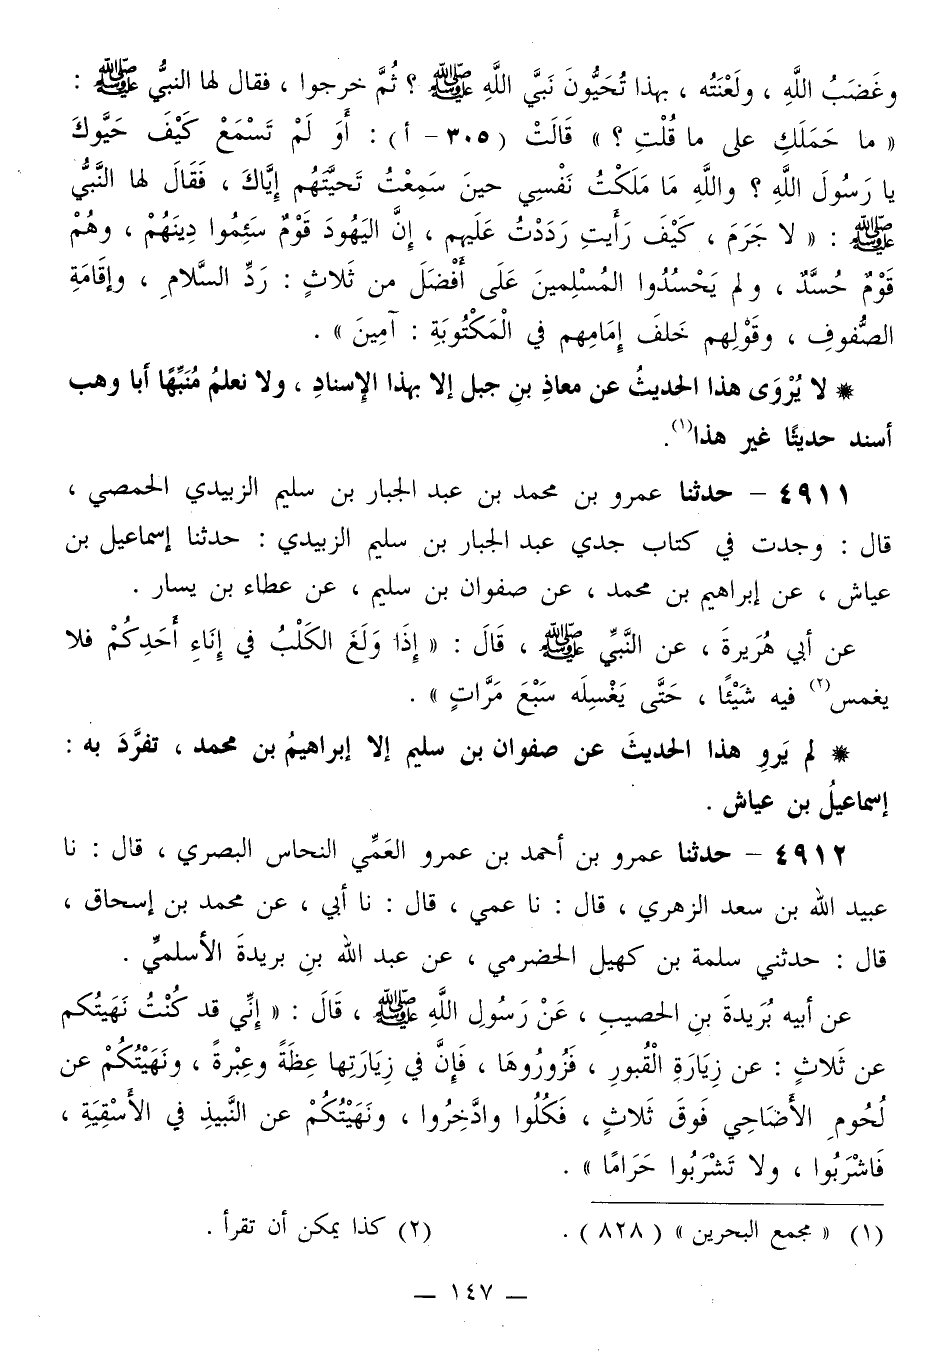 وغَضَبُ اللَّهِ ، ولَعْنَتُه ، بهذا تُحَيُّونَ نَبيَّ اللَّهِ ﷺ ؟ ثُمَّ خرجوا ، فقال لها النبيُّ ﷺ :
« ما حَمَلَكِ على ما قُلْتِ ؟ » قَالَتْ ( ٣٠٥ - أ ) : أَوَ لَمْ تَسْمَعْ كَيْفَ حَيَّوكَ
يا رَسُولَ اللَّهِ ؟ واللَّهِ مَا مَلَكْتُ نَفْسِي حينَ سَمِعْتُ تَحيَّتَهُم إيَّاكَ ، فَقَالَ لها النَّبيُّ
ﷺ : « لا جَرَمَ ، كَيْفَ رَأَيتِ رَدَدْتُ عَلَيهِم ، إنَّ اليَهُودَ قَوْمٌ سَئِمُوا دِينَهُمْ ، وهُمْ
قَوْمٌ حُسَّدٌ ، ولم يَحْسُدُوا المُسْلِمينَ عَلَى أَفْضَلَ من ثَلاثٍ : رَدِّ السَّلامِ ، وإقَامَةِ
الصُّفوفِ ، وقَوْلِهم خَلفَ إمَامِهم في الْمَكْتُوبَةِ : آمِينَ » .
* لا يُرْوَى هذا الحديثُ عن معاذِ بنِ جبل إلا بهذا الإسنادِ ، ولا نعلمُ مُنَبِّهًا أبا وهب
أسند حديثًا غير هذا(١).
٤٩١١ - حدثنا عمرو بن محمد بن عبد الجبار بن سليم الزبيدي الحمصي ،
قال : وجدت في كتاب جدي عبد الجبار بن سليم الزبيدي : حدثنا إسماعيل بن
عياش ، عن إبراهيم بن محمد ، عن صفوان بن سليم ، عن عطاء بن يسار .
عن أبي هُرَيرةَ ، عن النَّبيِّ ﷺ ، قَالَ : « إِذَا وَلَغَ الكَلْبُ في إِنَاءِ أَحَدِكُمْ فلا
يغمس(٢) فيه شَيْئًا ، حَتَّى يَغْسِلَه سَبْعَ مَرَّاتٍ » .
* لم يَروِ هذا الحديثَ عن صفوان بن سليم إلا إبراهيمُ بن محمد ، تفرَّدَ به :
إسماعيلُ بن عياش .
٤٩١٢ - حدثنا عمرو بن أحمد بن عمرو العَمِّي النحاس البصري ، قال : نا
عبيد الله بن سعد الزهري ، قال : نا عمي ، قال : نا أبي ، عن محمد بن إسحاق ،
قال : حدثني سلمة بن كهيل الحضرمي ، عن عبد الله بنِ بريدةَ الأسلميِّ .
عن أبيه بُرَيدةَ بنِ الحصيبِ ، عَنْ رَسُولِ اللَّهِ ﷺ ، قَالَ : « إنِّي قد كُنْتُ نَهَيتُكم
عن ثَلاثٍ : عن زِيَارَةِ الْقُبورِ ، فَزُورُوهَا ، فَإنَّ في زِيَارَتِها عِظَةً وعِبْرةً ، ونَهَيْتُكُمْ عن
لُحُومِ الأَضَاحِي فَوقَ ثَلاثٍ ، فَكُلُوا وادَّخِرُوا ، ونَهَيْتُكُمْ عن النَّبيذِ في الأَسْقِيَةِ ،
فَاشْرَبُوا ، ولا تَشْرَبُوا حَرَامًا » .
(١) « مجمع البحرين » ( ٨٢٨ ) . (٢) كذا يمكن أن تقرأ .
— ١٤٧ —